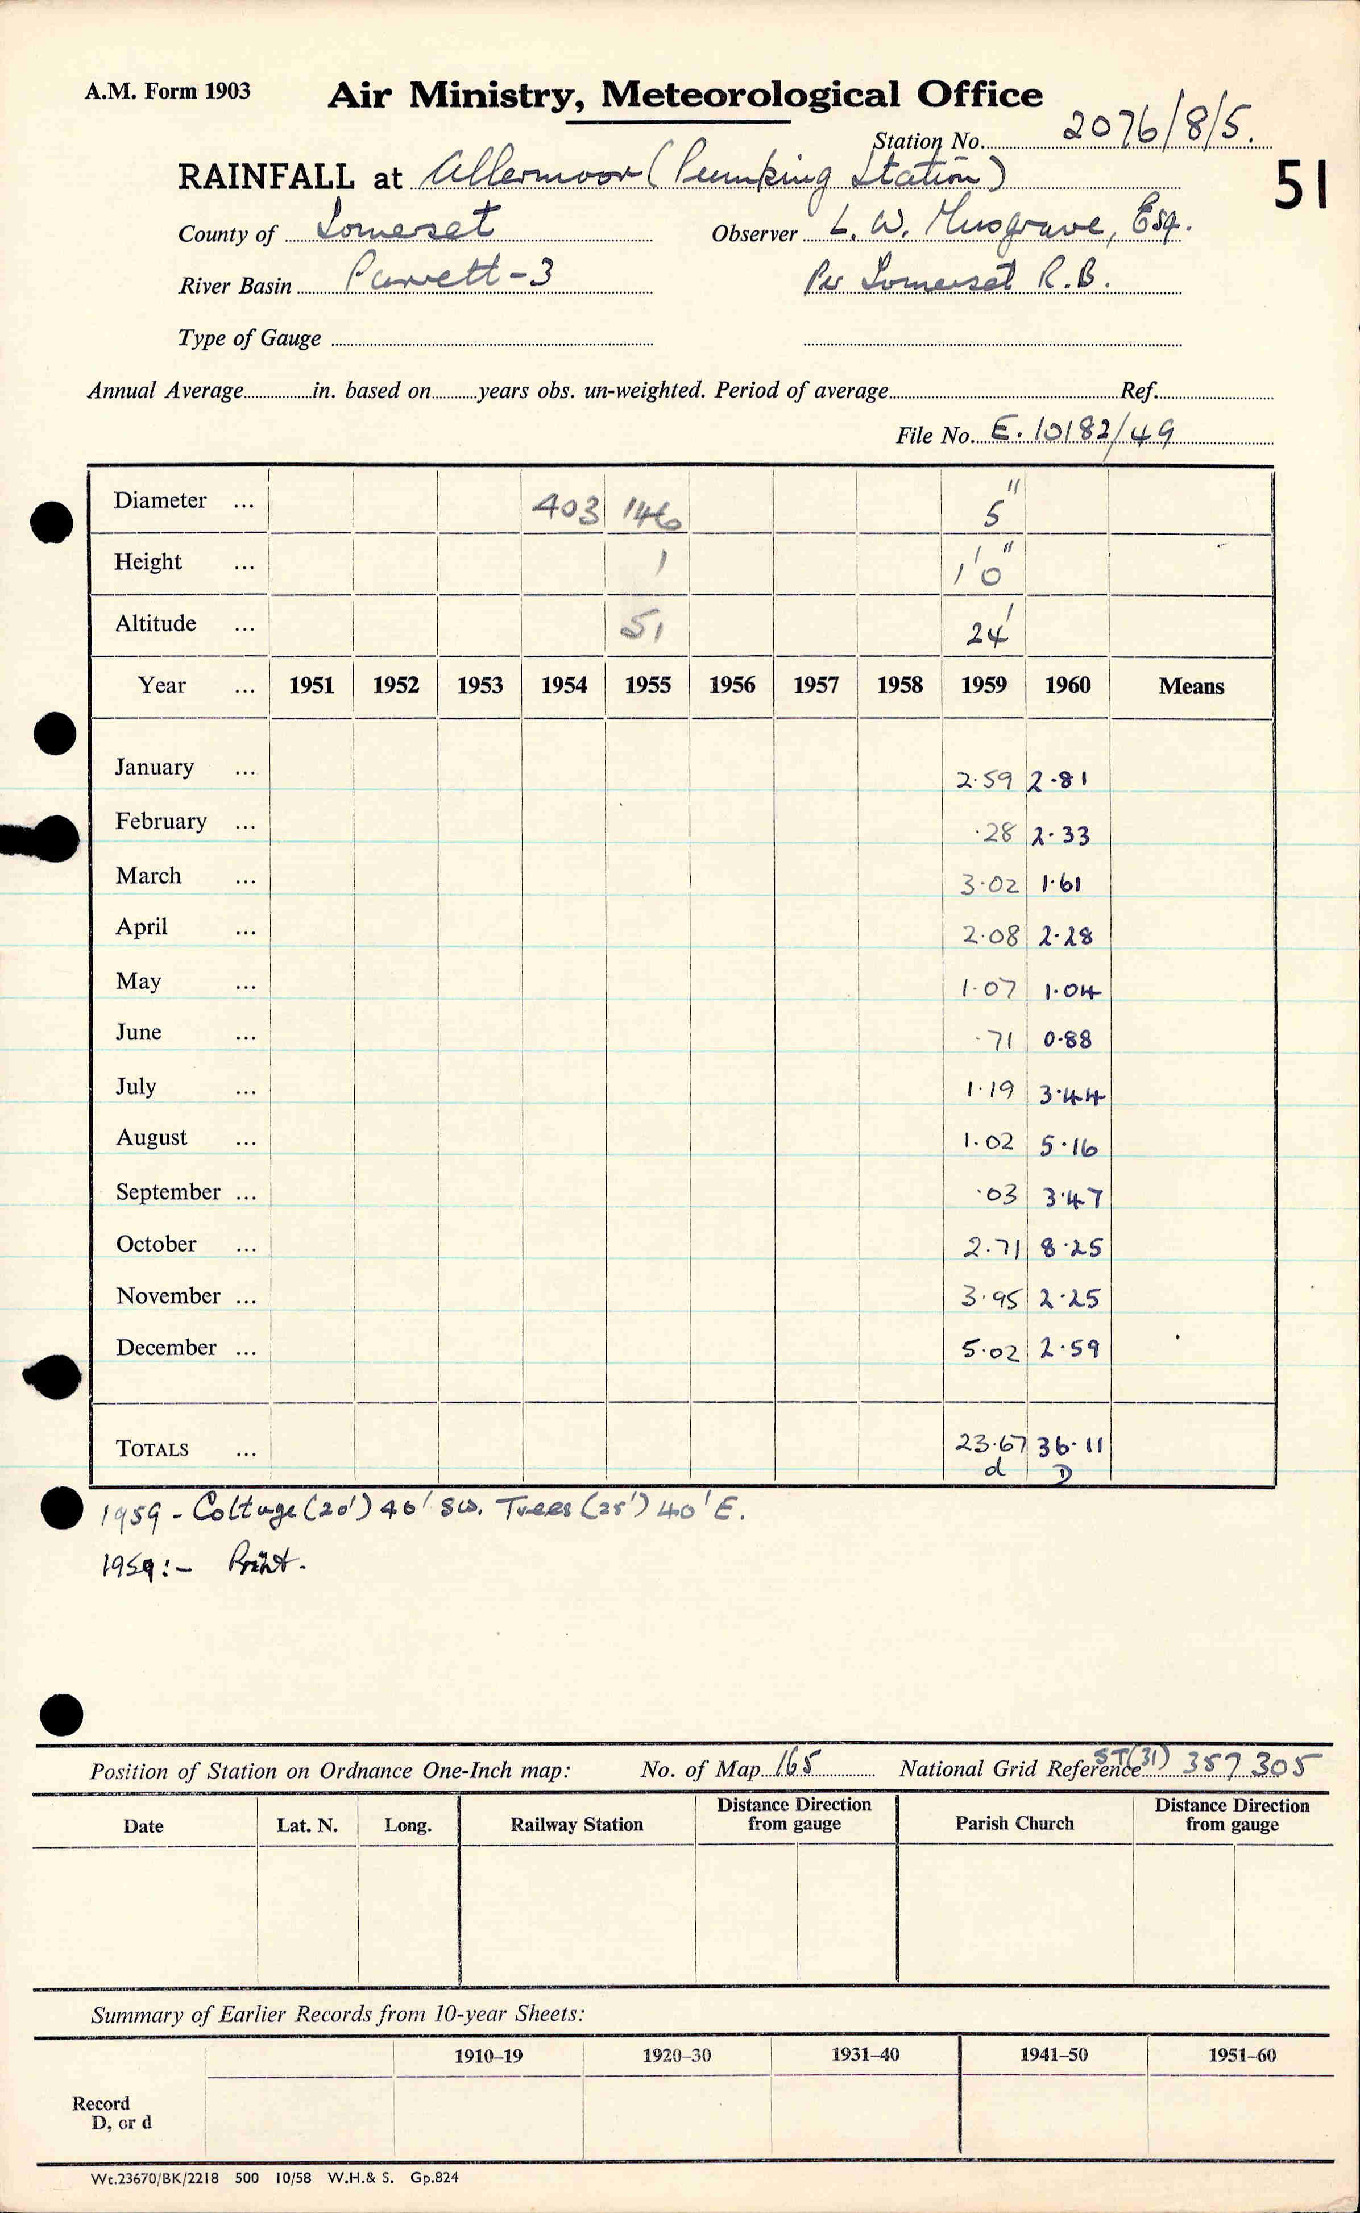 A.M. Form 1903
Air Ministry, Meteorological Office
Station No. 2076/8/5.
51
RAINFALL at Allermoor (Pumping Station)
County of Somerset Observer L. W. Musgrave, Esq.
River Basin Parrett-3 Per Somerset R.B.
Type of Gauge
Annual Average in. based on years obs. un-weighted. Period of average Ref.
File No. E. 10182/49
Diameter ... 403 146 5"
Height ... 1 1'0"
Altitude ... 51 24'
Year ... 1951 1952 1953 1954 1955 1956 1957 1958 1959 1960 Means
January ... 2.59 2.81
February ... .28 2.33
March ... 3.02 1.61
April ... 2.08 2.28
May ... 1.07 1.04
June ... .71 0.88
July ... 1.19 3.44
August ... 1.02 5.16
September ... .03 3.47
October ... 2.71 8.25
November ... 3.95 2.25
December ... 5.02 2.59
TOTALS ... 23.67 36.11
d D
1959 - Cottage (20') 40' SW. Trees (25') 40' E.
1959:- Print.
Position of Station on Ordnance One-Inch map: No. of Map 165 National Grid Reference ST(31) 357 305
Date Lat. N. Long. Railway Station Distance Direction from gauge Parish Church Distance Direction from gauge
Summary of Earlier Records from 10-year Sheets:
1910–19 1920–30 1931–40 1941–50 1951–60
Record
D, or d
Wt.23670/BK/2218 500 10/58 W.H.& S. Gp.824